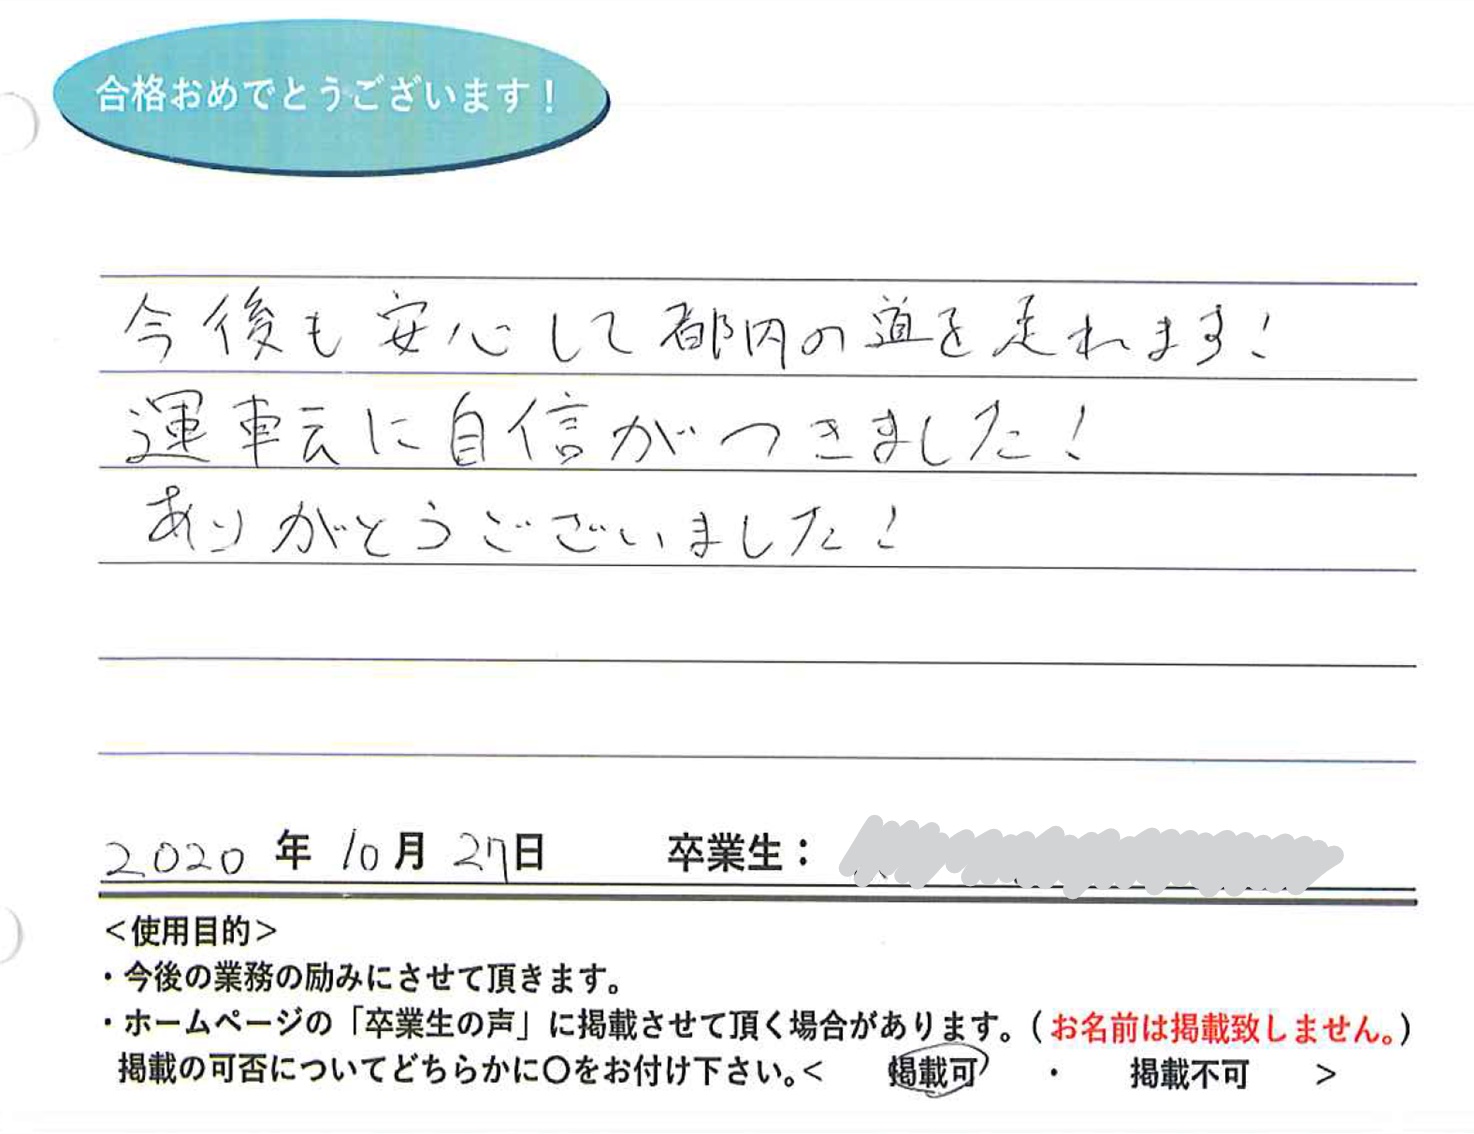 合格おめでとうございます！
今後も安心して都内の道を走れます！
運転に自信がつきました！
ありがとうございました！
2020年10月27日 卒業生：
＜使用目的＞
・今後の業務の励みにさせて頂きます。
・ホームページの「卒業生の声」に掲載させて頂く場合があります。（お名前は掲載致しません。）
掲載の可否についてどちらかに〇をお付け下さい。＜ 掲載可 ・ 掲載不可 ＞